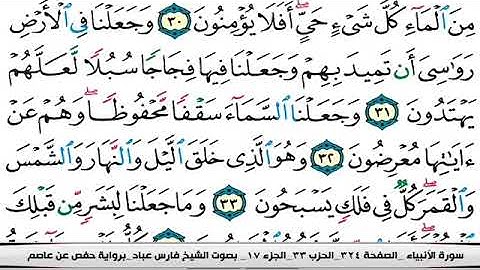 مِنَ ٱلْمَآءِ كُلَّ شَىْءٍ حَىٍّ ۖ أَفَلَا يُؤْمِنُونَ ٣٠ وَجَعَلْنَا فِى ٱلْأَرْضِ
رَوَٰسِىَ أَن تَمِيدَ بِهِمْ وَجَعَلْنَا فِيهَا فِجَاجًا سُبُلًا لَّعَلَّهُمْ
يَهْتَدُونَ ٣١ وَجَعَلْنَا ٱلسَّمَآءَ سَقْفًا مَّحْفُوظًا ۖ وَهُمْ عَنْ
ءَايَٰتِهَا مُعْرِضُونَ ٣٢ وَهُوَ ٱلَّذِى خَلَقَ ٱلَّيْلَ وَٱلنَّهَارَ وَٱلشَّمْسَ
وَٱلْقَمَرَ ۖ كُلٌّ فِى فَلَكٍ يَسْبَحُونَ ٣٣ وَمَا جَعَلْنَا لِبَشَرٍ مِّن قَبْلِكَ
سورة الأنبياء _الصفحة ٣٢٤_ الحزب ٣٣_ الجزء ١٧_ بصوت الشيخ فارس عباد_برواية حفص عن عاصم